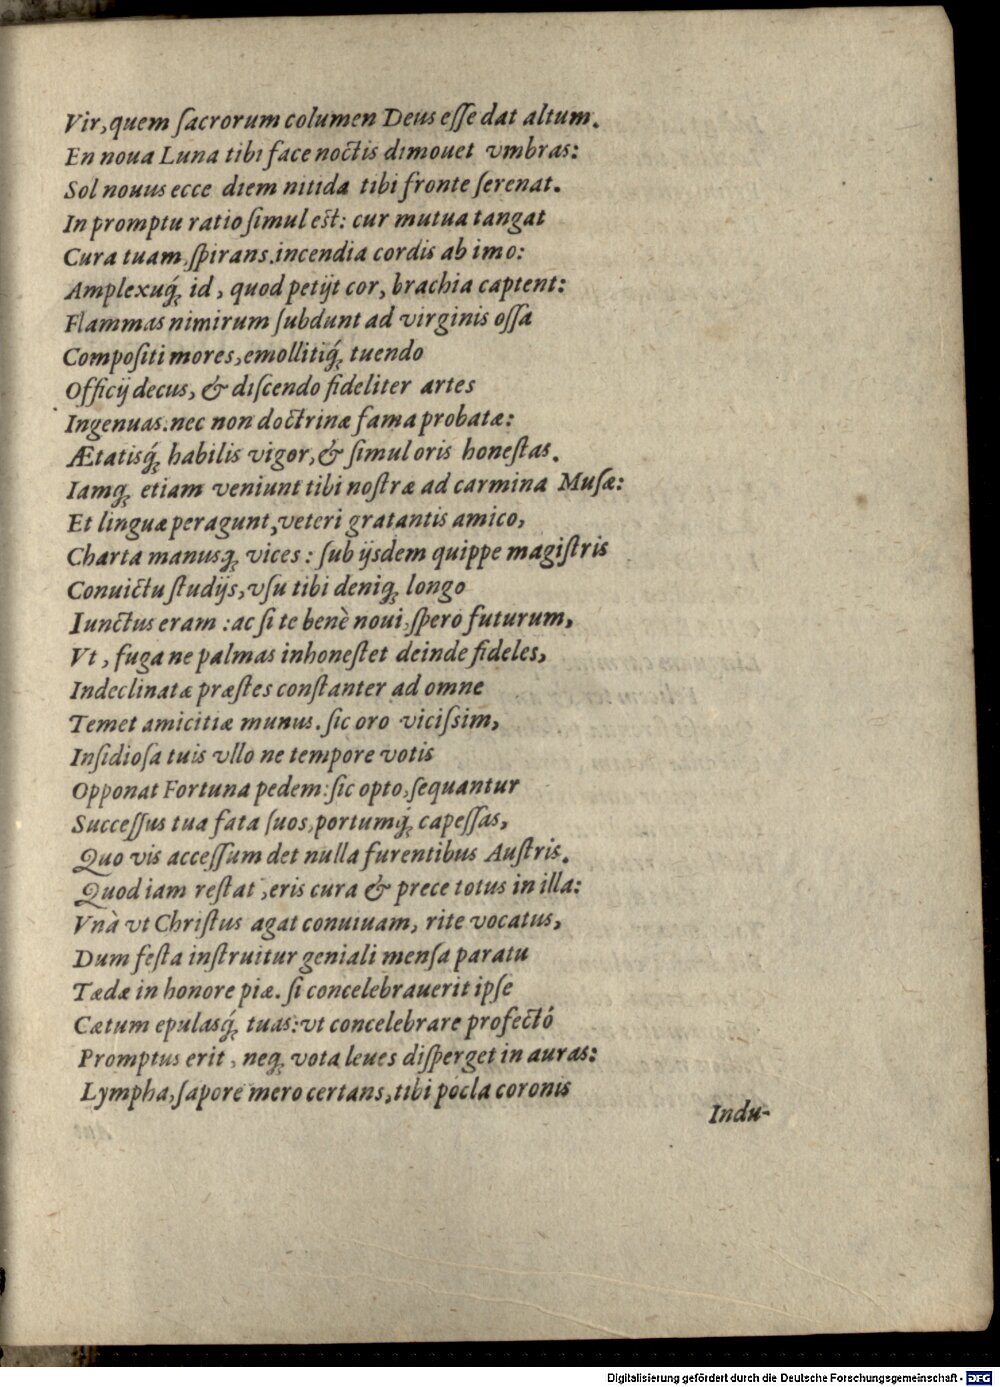 Vir, quem ſacrorum columen Deus eſſe dat altum.
En noua Luna tibi face noctis dimouet vmbras:
Sol nouus ecce diem nitida tibi fronte ſerenat.
In promptu ratio ſimul est: cur mutua tangat
Cura tuam, ſpirans incendia cordis ab imo:
Amplexuq́ꝫ id, quod petijt cor, brachia captent:
Flammas nimirum ſubdunt ad virginis oſſa
Compoſiti mores, emollitiq́ꝫ tuendo
Officij decus, & diſcendo fideliter artes
Ingenuas. nec non doctrinæ fama probatæ:
Ætatisq́ꝫ habilis vigor, & ſimul oris honeſtas.
Iamqꝫ etiam veniunt tibi noſtræ ad carmina Muſæ:
Et linguæ peragunt, veteri gratantis amico,
Charta manusqꝫ vices: ſub ijsdem quippe magiſtris
Conuictu ſtudijs, vſu tibi deniqꝫ longo
Iunctus eram: ac ſi te benè noui, ſpero futurum,
Vt, fuga ne palmas inhoneſtet deinde fideles,
Indeclinatæ præſtes conſtanter ad omne
Temet amicitiæ munus. ſic oro viciſsim,
Inſidioſa tuis vllo ne tempore votis
Opponat Fortuna pedem: ſic opto, ſequantur
Succeſſus tua fata ſuos, portumq́ꝫ capeſſas,
Quo vis acceſſum det nulla furentibus Auſtris.
Quod iam reſtat, eris cura & prece totus in illa:
Vnà vt Chriſtus agat conuiuam, rite vocatus,
Dum feſta inſtruitur geniali menſa paratu
Tædæ in honore piæ. ſi concelebrauerit ipſe
Cætum epulasq́ꝫ tuas: vt concelebrare profectó
Promptus erit, neqꝫ vota leues diſperget in auras:
Lympha, ſapore mero certans, tibi pocla coronis
Indu-
Digitalisierung gefördert durch die Deutsche Forschungsgemeinschaft - DFG